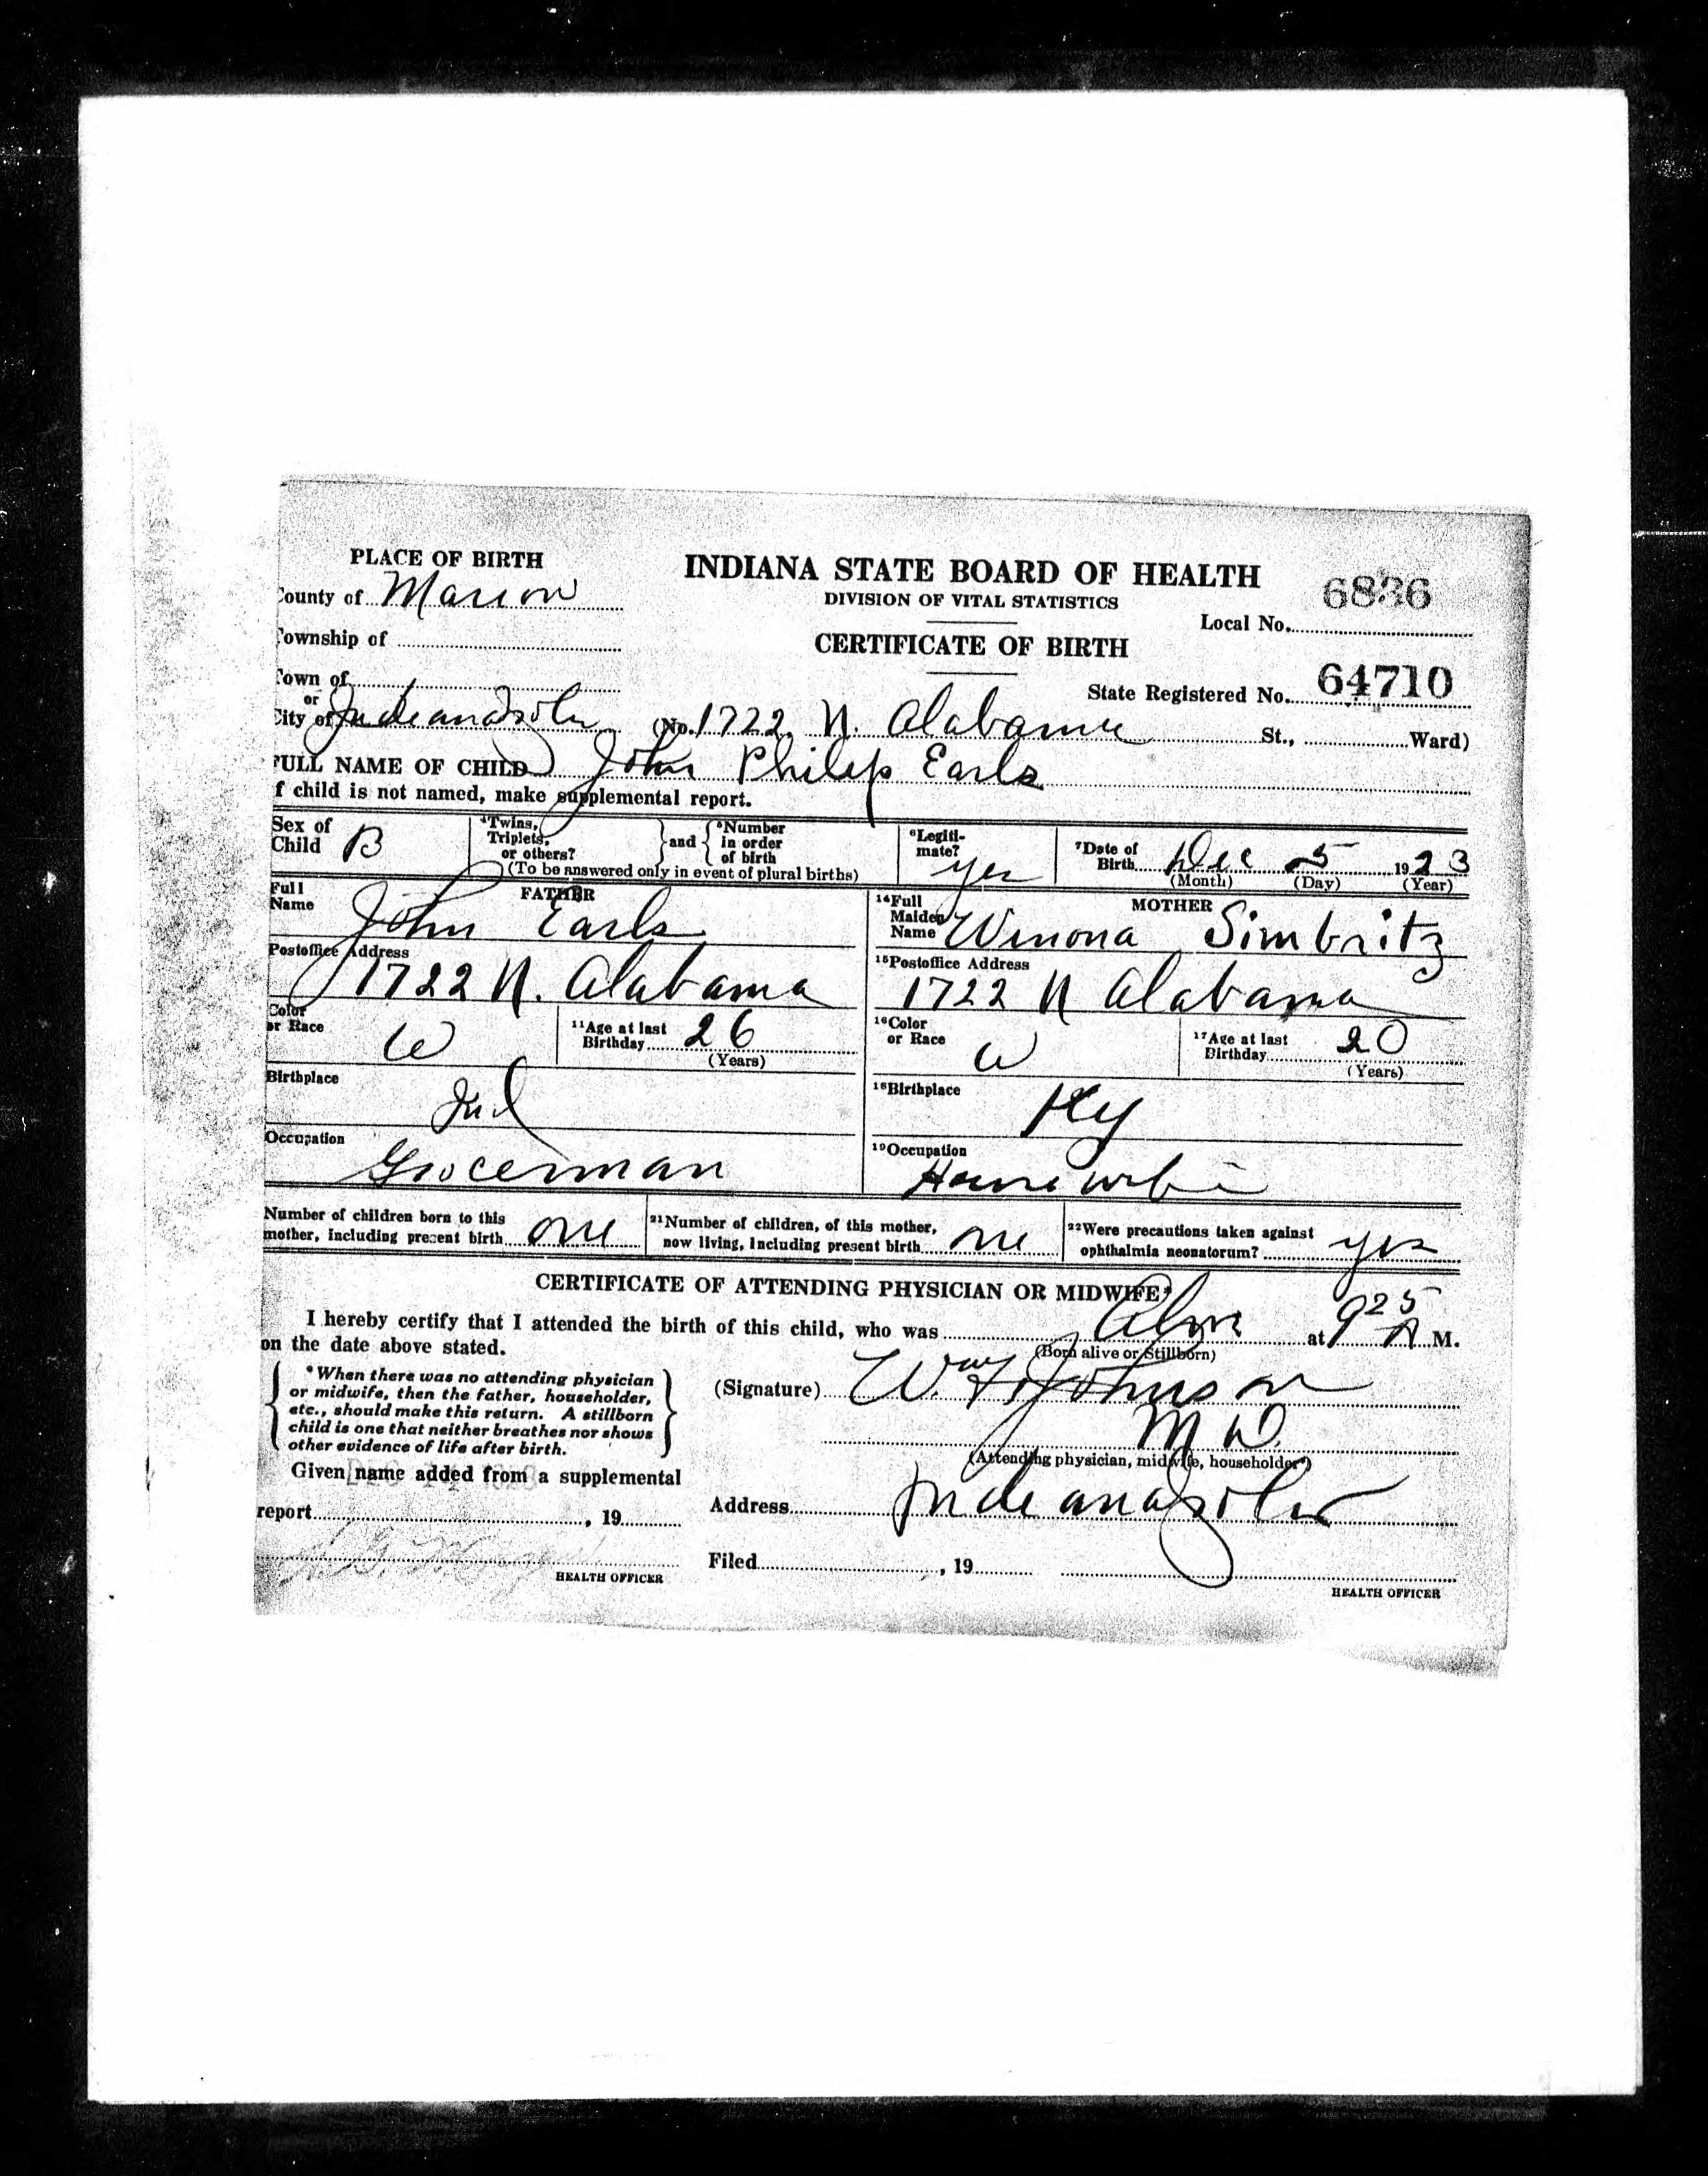 PLACE OF BIRTH
County of Marion
Township of
Town of
or
City of Indianapolis (No. 1722 N. Alabama St., Ward)
INDIANA STATE BOARD OF HEALTH
DIVISION OF VITAL STATISTICS
CERTIFICATE OF BIRTH
6836
Local No.
State Registered No. 64710
FULL NAME OF CHILD John Philip Earls
If child is not named, make supplemental report.
Sex of Child B
4 Twins, Triplets, or others? and 5 Number in order of birth
(To be answered only in event of plural births)
6 Legitimate? yes
7 Date of Birth Dec 5 1923
(Month) (Day) (Year)
FATHER
Full Name John Earls
Postoffice Address
1722 N. Alabama
Color or Race W
11 Age at last Birthday 26
(Years)
Birthplace
Ind
Occupation
Grocerman
MOTHER
14 Full Maiden Name Winona Simbritz
15 Postoffice Address
1722 N Alabama
16 Color or Race W
17 Age at last Birthday 20
(Years)
18 Birthplace
Ky
19 Occupation
Housewife
Number of children born to this mother, including present birth one
21 Number of children, of this mother, now living, including present birth one
22 Were precautions taken against ophthalmia neonatorum? yes
CERTIFICATE OF ATTENDING PHYSICIAN OR MIDWIFE*
I hereby certify that I attended the birth of this child, who was Alive at 9 25 A M.
(Born alive or Stillborn)
on the date above stated.
* When there was no attending physician
or midwife, then the father, householder,
etc., should make this return. A stillborn
child is one that neither breathes nor shows
other evidence of life after birth.
(Signature) Wm F Johnson
M D.
(Attending physician, midwife, householder*)
Given name added from a supplemental
report , 19
HEALTH OFFICER
Address Indianapolis
Filed , 19
HEALTH OFFICER